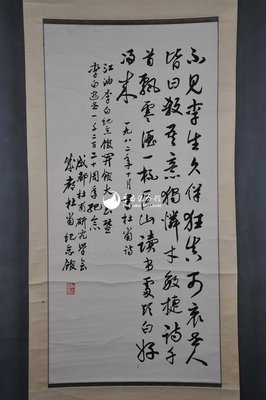 不见李生久佯狂真可哀世人
皆曰殺吾意獨憐才敏捷詩千
首飄零酒一杯匡山读书處头白好
归来 一九八二年十月書杜甫诗
江油李白纪念馆开馆大会暨
李白逝世一千二百二十周年纪念
成都杜甫研究学会
成都杜甫纪念馆